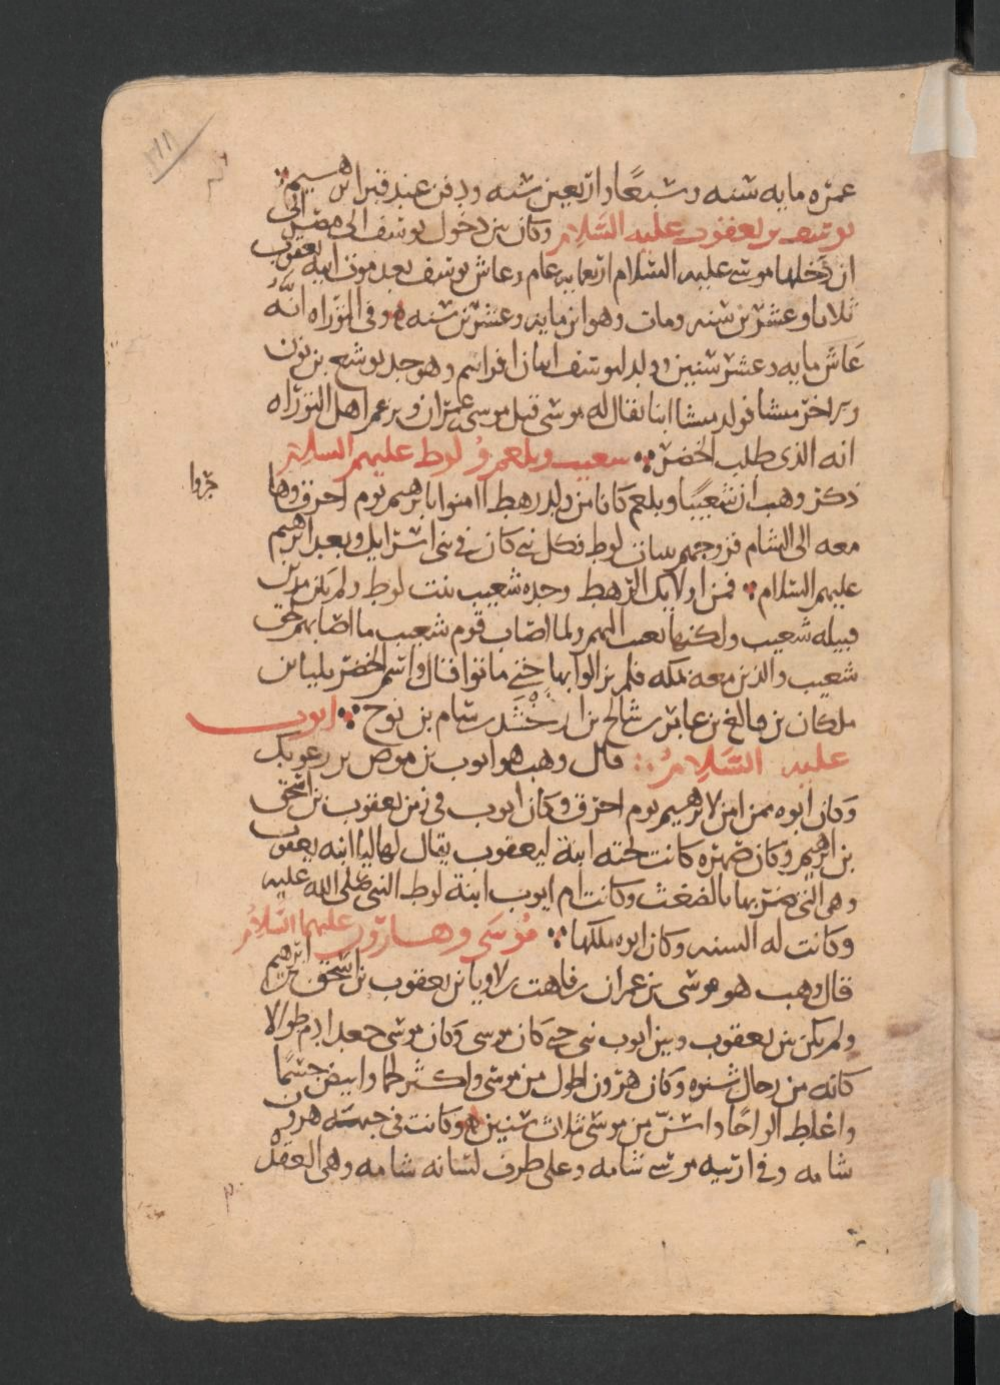 عمره مايه سنه وسبعًا واربعين سنه ودفن عند قبر ابرهيم
يوسف بن يعقوب عليه السلام وكان بين دخول يوسف الى مصر الى
ان دخلها موسى عليه السلام اربعمايه عام وعاش يوسف بعد موت ابيه يعقوب
ثلاثا وعشرين سنه ومات وهو ابن مايه وعشرين سنه وفى التوراه انه
عاش مايه وعشر سنين وولد ليوسف ابنان افراىيم وهو جد يوشع بن نون
والاخر ميشا فولد ميشا ابنا يقال له موسى قبل موسى بن عمران ويزعم اهل التوراه
انه الذى طلب الخضر شعيب وبلعم ولوط عليهم السلام
ذكر وهب ان شعيبًا وبلعم كانا من ولد رهط امنوا بابرهيم يوم احرق وهاجروا
معه الى الشام فزوجهم بنات لوط فكل نبى كان فى بنى اسرايل وبعد ابرهيم
عليهم السلام فمن اولايك الرهط وجده شعيب بنت لوط ولم يكن مدين
قبيله شعيب ولكنها بعث اليهم ولما اصاب قوم شعيب ما اصابهم لحق
شعيب والذين معه بمكه فلم يزالوا بها حتى ماتوا قال واسم الخضر بليا بن
ملكان بن فالغ بن عابر بن شالخ بن ارفخشد بن سام بن نوح ايوب
عليه السلام قال وهب هو ايوب بن موص بن رعويل
وكان ابوه ممن امن لابرهيم يوم احرق وكان ايوب فى زمن يعقوب بن اسحق
بن ابرهيم وكان صهره كانت تحته ابنة ليعقوب يقال لها ليا ابنه يعقوب
وهى التى ضربها بالضغث وكانت ام ايوب ابنة لوط النبى صلى الله عليه
وكانت له البثنيه وكان ابوه ملكها موسى وهارون عليهما السلام
قال وهب هو موسى بن عمران بن قاهت بن لاوى بن يعقوب بن اسحق بن ابرهيم
ولم يكن بين يعقوب وبين ايوب نبى حتى كان موسى وكان موسى جعدا ادم طوالا
كانه من رجال شنوه وكان هرون اطول من موسى واكثر لحما وابيض جسمًا
واغلظ الواحًا واسنّ من موسى بثلاث سنين وكانت فى جبهته هرون
شامه وفى ارنبه موسى شامه وعلى طرف لسانه شامه وهى العقده